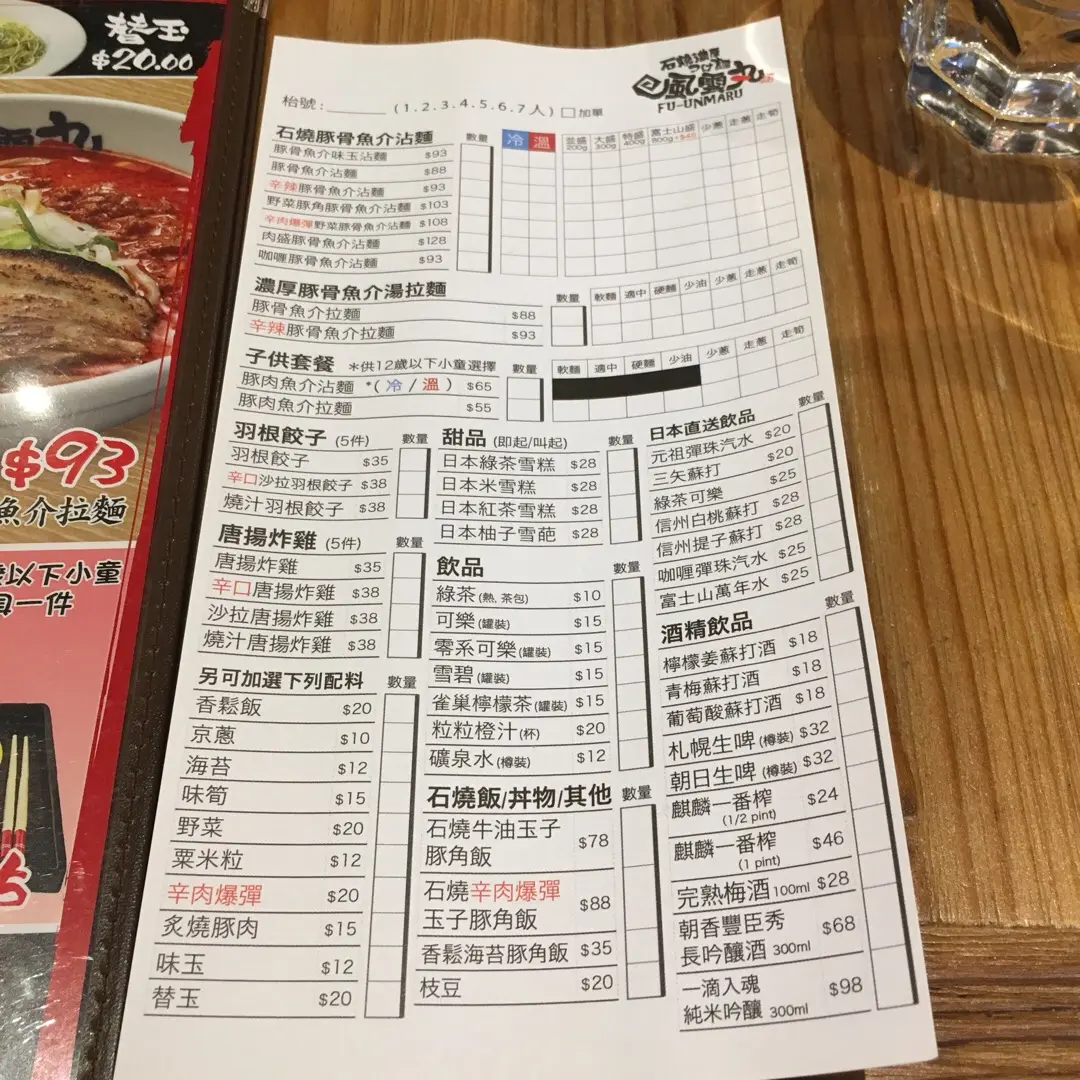 替玉
$20.00
$93
魚介拉麵
以下小童
一件
石燒濃厚
つけ麵
風雲丸
FU-UNMARU
枱號:______ (1.2.3.4.5.6.7人) □加單
石燒豚骨魚介沾麵 數量 冷 溫 並盛 200g 大盛 300g 特盛 400g 富士山盛 800g+$40 少蔥 走蔥 走筍
豚骨魚介味玉沾麵 $93
豚骨魚介沾麵 $88
辛辣豚骨魚介沾麵 $93
野菜豚角豚骨魚介沾麵 $103
辛肉爆彈野菜豚骨魚介沾麵 $108
肉盛豚骨魚介沾麵 $128
咖喱豚骨魚介沾麵 $93
濃厚豚骨魚介湯拉麵 數量 軟麵 適中 硬麵 少油 少蔥 走蔥 走筍
豚骨魚介拉麵 $88
辛辣豚骨魚介拉麵 $93
子供套餐 *供12歲以下小童選擇 數量 軟麵 適中 硬麵 少油 少蔥 走蔥 走筍
豚肉魚介沾麵 *(冷/溫) $65
豚肉魚介拉麵 $55
羽根餃子 (5件) 數量
羽根餃子 $35
辛口沙拉羽根餃子 $38
燒汁羽根餃子 $38
唐揚炸雞 (5件) 數量
唐揚炸雞 $35
辛口唐揚炸雞 $38
沙拉唐揚炸雞 $38
燒汁唐揚炸雞 $38
另可加選下列配料 數量
香鬆飯 $20
京蔥 $10
海苔 $12
味筍 $15
野菜 $20
粟米粒 $12
辛肉爆彈 $20
炙燒豚肉 $15
味玉 $12
替玉 $20
甜品 (即起/叫起) 數量
日本綠茶雪糕 $28
日本米雪糕 $28
日本紅茶雪糕 $28
日本柚子雪葩 $28
飲品 數量
綠茶(熱,茶包) $10
可樂(罐裝) $15
零系可樂(罐裝) $15
雪碧(罐裝) $15
雀巢檸檬茶(罐裝) $15
粒粒橙汁(杯) $20
礦泉水(樽裝) $12
石燒飯/丼物/其他 數量
石燒牛油玉子
豚角飯 $78
石燒辛肉爆彈
玉子豚角飯 $88
香鬆海苔豚角飯 $35
枝豆 $20
日本直送飲品 數量
元祖彈珠汽水 $20
三矢蘇打 $20
綠茶可樂 $25
信州白桃蘇打 $28
信州提子蘇打 $28
咖喱彈珠汽水 $25
富士山萬年水 $25
酒精飲品 數量
檸檬姜蘇打酒 $18
青梅蘇打酒 $18
葡萄酸蘇打酒 $18
札幌生啤(樽裝) $32
朝日生啤(樽裝) $32
麒麟一番榨 $24
(1/2 pint)
麒麟一番榨 $46
(1 pint)
完熟梅酒 100ml $28
朝香豐臣秀
長吟釀酒 300ml $68
一滴入魂
純米吟釀 300ml $98